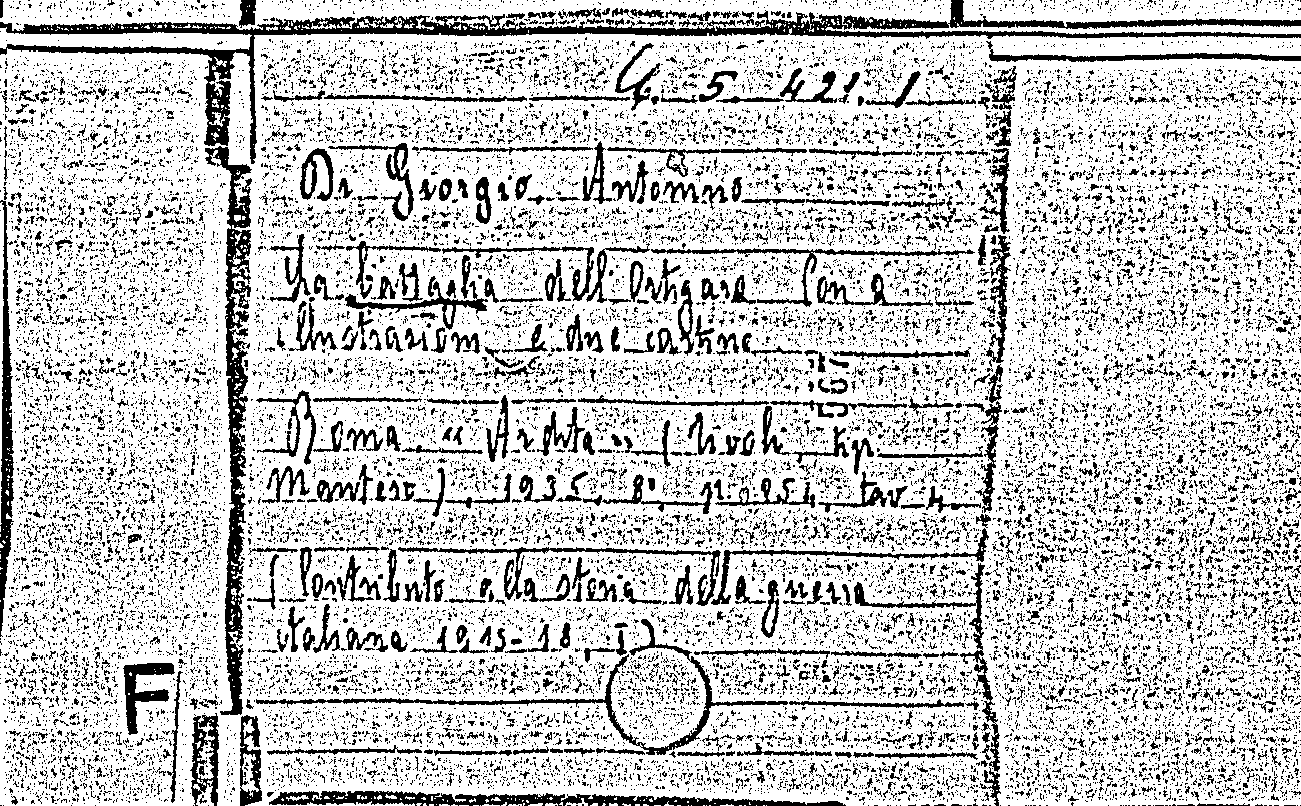 G. 5. 421. 1
Di Giorgio, Antonino
La battaglia dell'Ortigara Con 2
illustrazioni e due cartine
567
Roma, "Ardita" (Tivoli, tip.
Mantero), 1935, 8°, p. 254, tav 4.
(Contributo alla storia della guerra
italiana 1915-18, I)
F